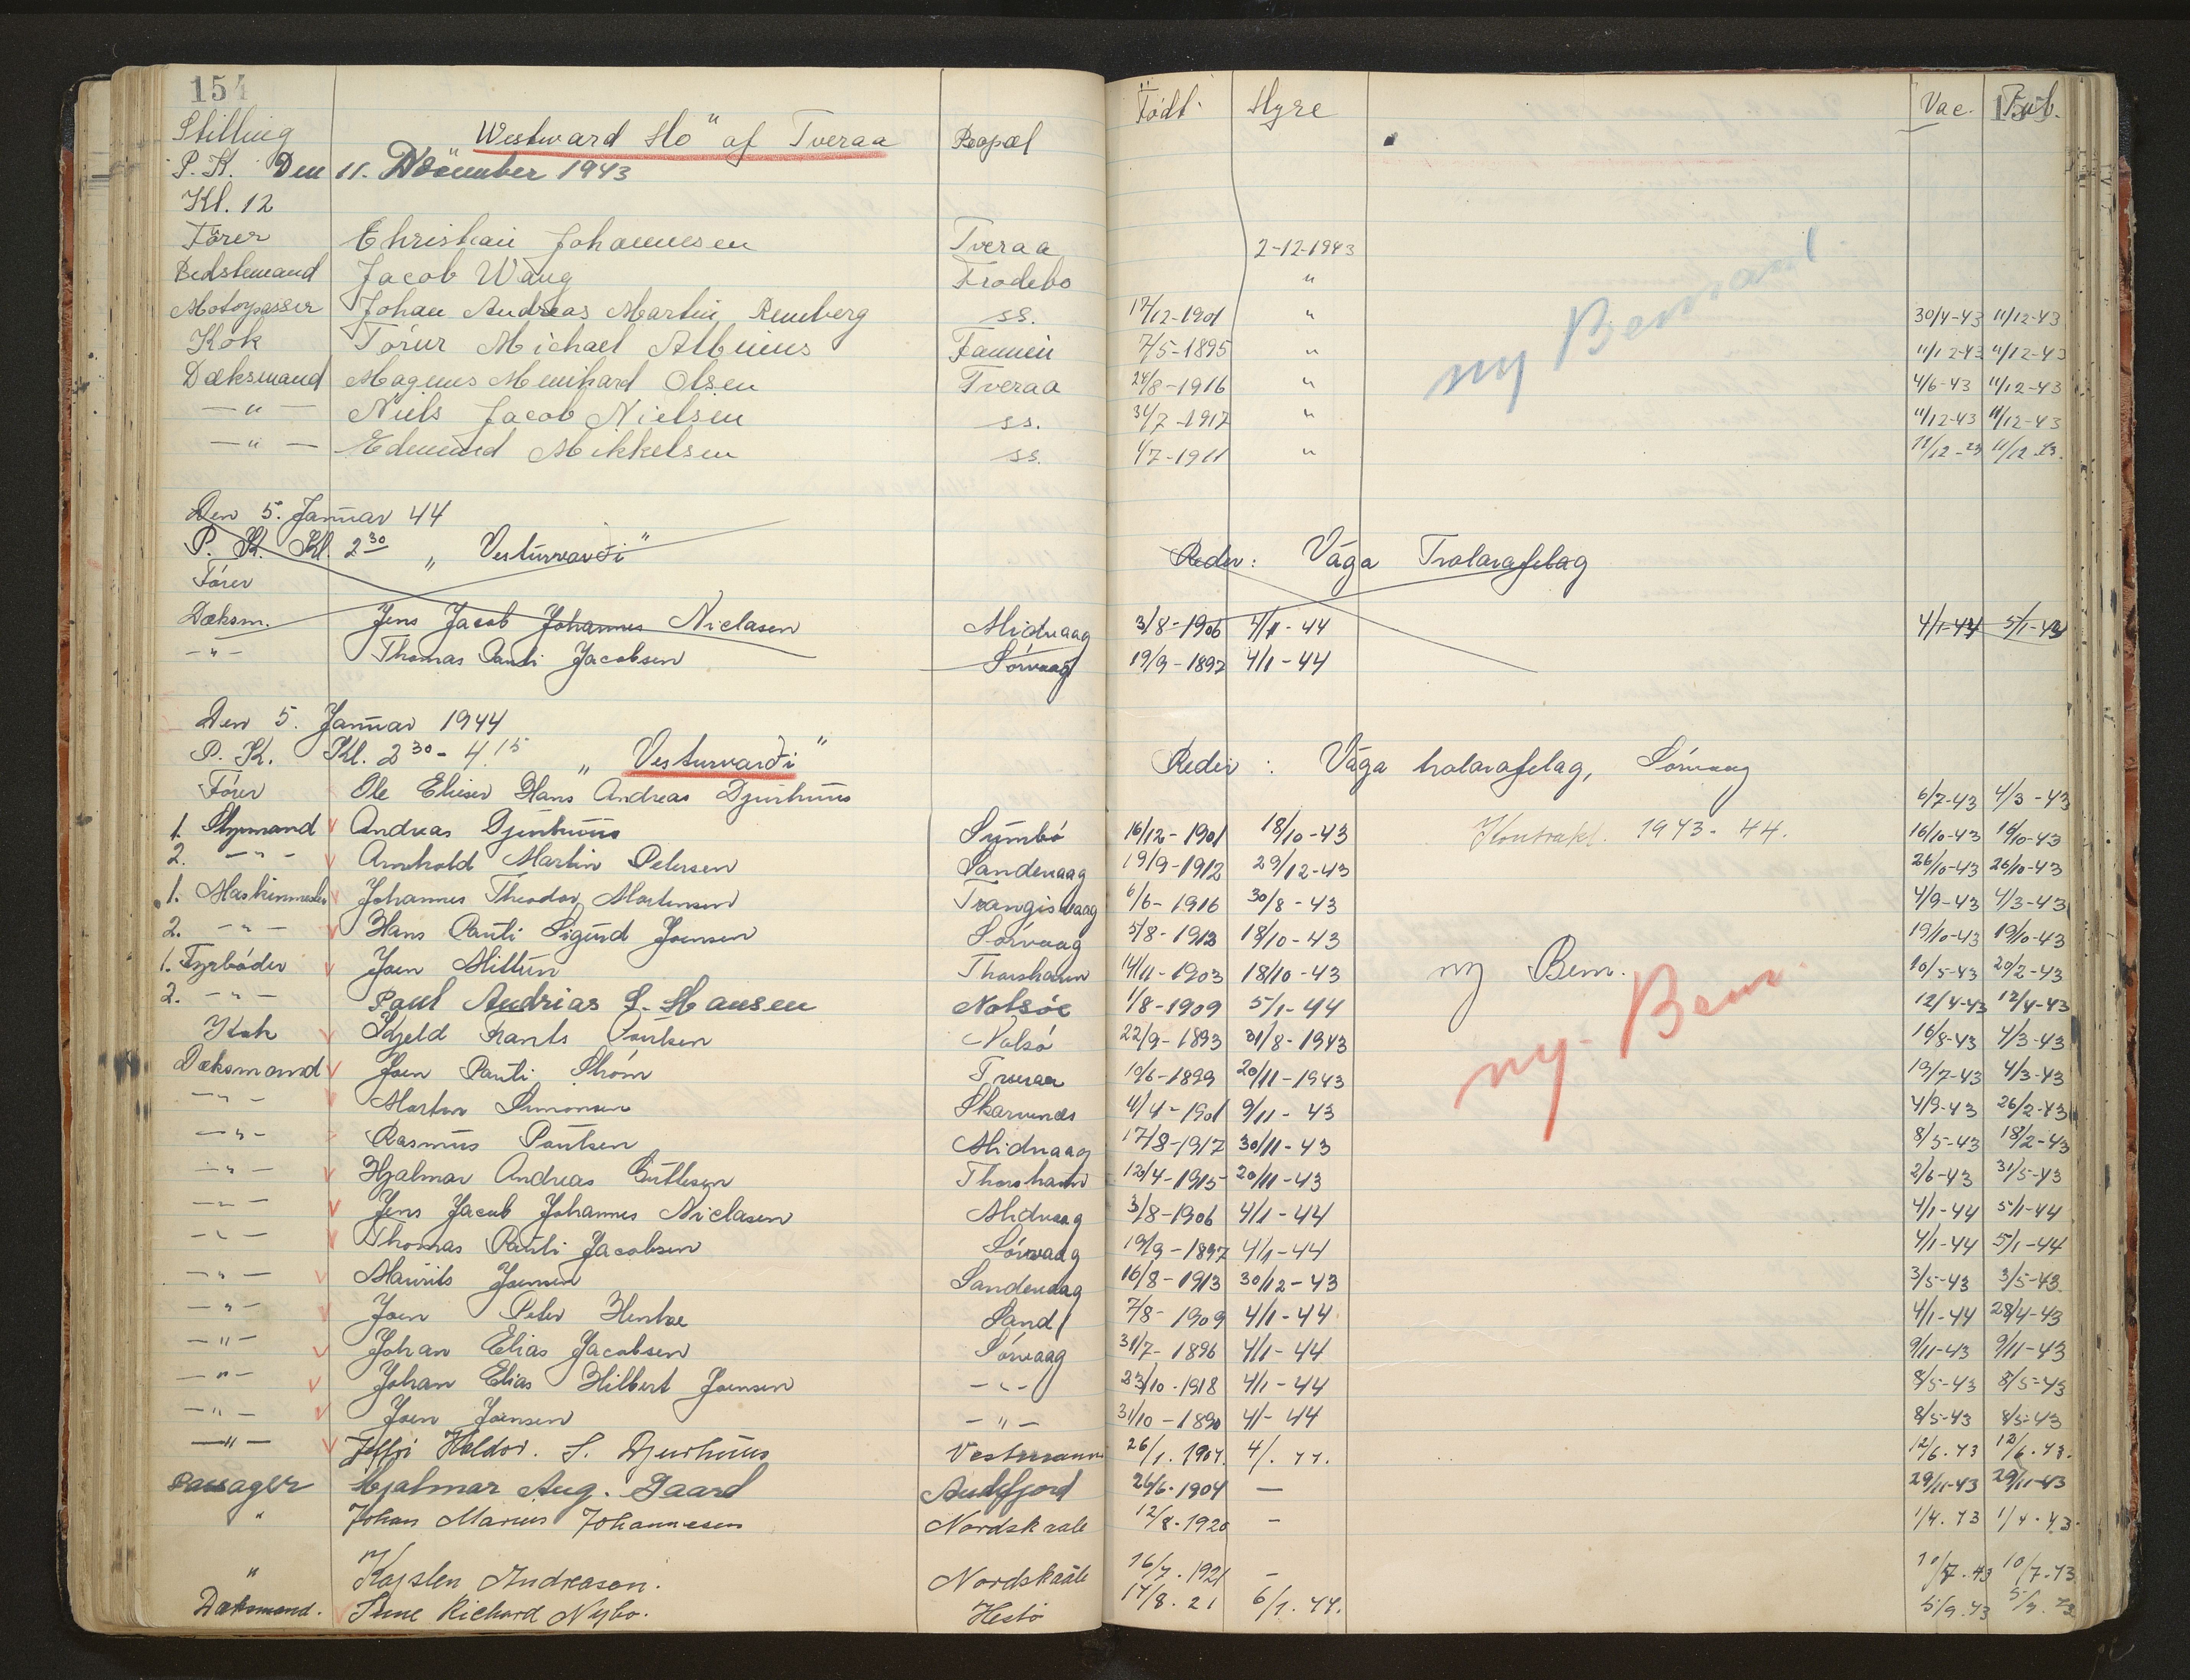 154
Stilling Westward Ho" af Tveraa Bopæl Födt Hyre Vac. Pub.
P. K. Den 11. December 1943
Kl. 12
Förer Christian Johannesen Tveraa 2-12-1943
Bedstemand Jacob Waag Frodebo "
Motorpasser Johan Andreas Martin Remberg ss. 17/12-1901 " 30/4-43 11/12-43
Kok Tórur Michael Albinus Famien 7/5-1895 " 11/12-43 11/12-43
Dæksmand Magnus Meinhard Olsen Tveraa 24/8-1916 " 4/6-43 11/12-43
—"— Niels Jacob Nielsen ss. 31/7-1917 " 11/12-43 11/12-43
—"— Edmund Mikkelsen ss. 4/7-1911 " 11/12-43 11/12-43.
ny Bemand.
Den 5. Januar 44
P. K. Kl. 2 30 „ Vesturvarði" Reder: Vága Trolarafelag
Fører
Dæksm. Jens Jacob Johannes Niclasen Midvaag 3/8-1906 4/1-44 4/1-44 5/1-43
—"— Thomas Pauli Jacobsen Sórvaag 19/9-1897 4/1-44
Den 5. Januar 1944
P. K. Kl. 2 30 - 4 15 „ Vesturvarði" Reder: Vága trolarafelag, Sórvaag
Fórer Ole Elieser Hans Andreas Djurhuus 6/7-43 4/3-43
1. Styrmand Andreas Djurhuus Sumbó 16/12-1901 18/10-43 Kontrakt. 1943-44. 16/10-43 16/10-43
2. —"— Arnhold Martin Petersen Sandevaag 19/9-1912 29/12-43 26/10-43 26/10-43
1. Maskinmester Johannes Theodor Mortensen Trangisvaag 6/6-1916 30/8-43 4/9-43 4/3-43
2. —"— Hans Pauli Sigurd Joensen Sórvaag 5/8-1913 18/10-43 19/10-43 19/10-43
1. Fyrbóder Joen Mittún Thorshavn 14/11-1903 18/10-43 ny Bem. 10/5-43 20/2-43
2. —"— Paul Andrias S. Hansen Nolsöe 1/8-1909 5/1-44 12/4-43 12/4-43
Kok Kjeld Frants Poulsen Nolsó 22/9-1893 31/8-1943 16/8-43 4/3-43
ny Bem.
Dæksmand Joen Pauli Strøm Tveraa 19/6-1899 20/11-1943 19/7-43 4/3-43
—"— Morten Simonsen Skarvenæs 4/4-1901 9/11-43 4/9-43 26/2-43
—"— Rasmus Poulsen Midvaag 17/8-1917 30/11-43 8/5-43 18/2-43
—"— Hjalmar Andreas Guttesen Thorshavn 12/4-1915 20/11-43 2/6-43 31/5-43
—"— Jens Jacob Johannes Niclasen Midvaag 3/8-1906 4/1-44 4/1-44 5/1-44
—"— Thomas Pauli Jacobsen Sórvaag 19/9-1897 4/1-44 4/1-44 5/1-44
—"— Maurits Joensen Sandevaag 16/8-1913 30/12-43 3/5-43 3/5-43
—"— Joen Peter Hentze Sand 7/8-1909 4/1-44 4/1-44 28/4-43
—"— Johan Elias Jacobsen Sórvaag 31/7-1896 4/1-44 9/11-43 9/11-43
—"— Johan Elias Hilbert Joensen —"— 23/10-1918 4/1-44 8/5-43 8/5-43
—"— Joen Joensen —"— 31/10-1890 4/-44 8/5-43 8/5-43
—"— Heldor. S. Djurhuus Vestmann 26/1.1907. 4/. 44. 12/6.43 12/6.43.
Passager Hjalmar Aug. Gaard Andefjord 26/6.1904 — 29/11-43 29/11-43
" Johan Marius Johannesen Nordskaale 12/8-1920 — 1/4.43 1/4.43.
" Karsten Andreasen. Nordskaale 16/7.1921 — 10/7.43 10/7.43
Dæksmand. Sune Richard Nybo. Hestö 17/8.21 6/1.44. 5/9.43 5/9.43